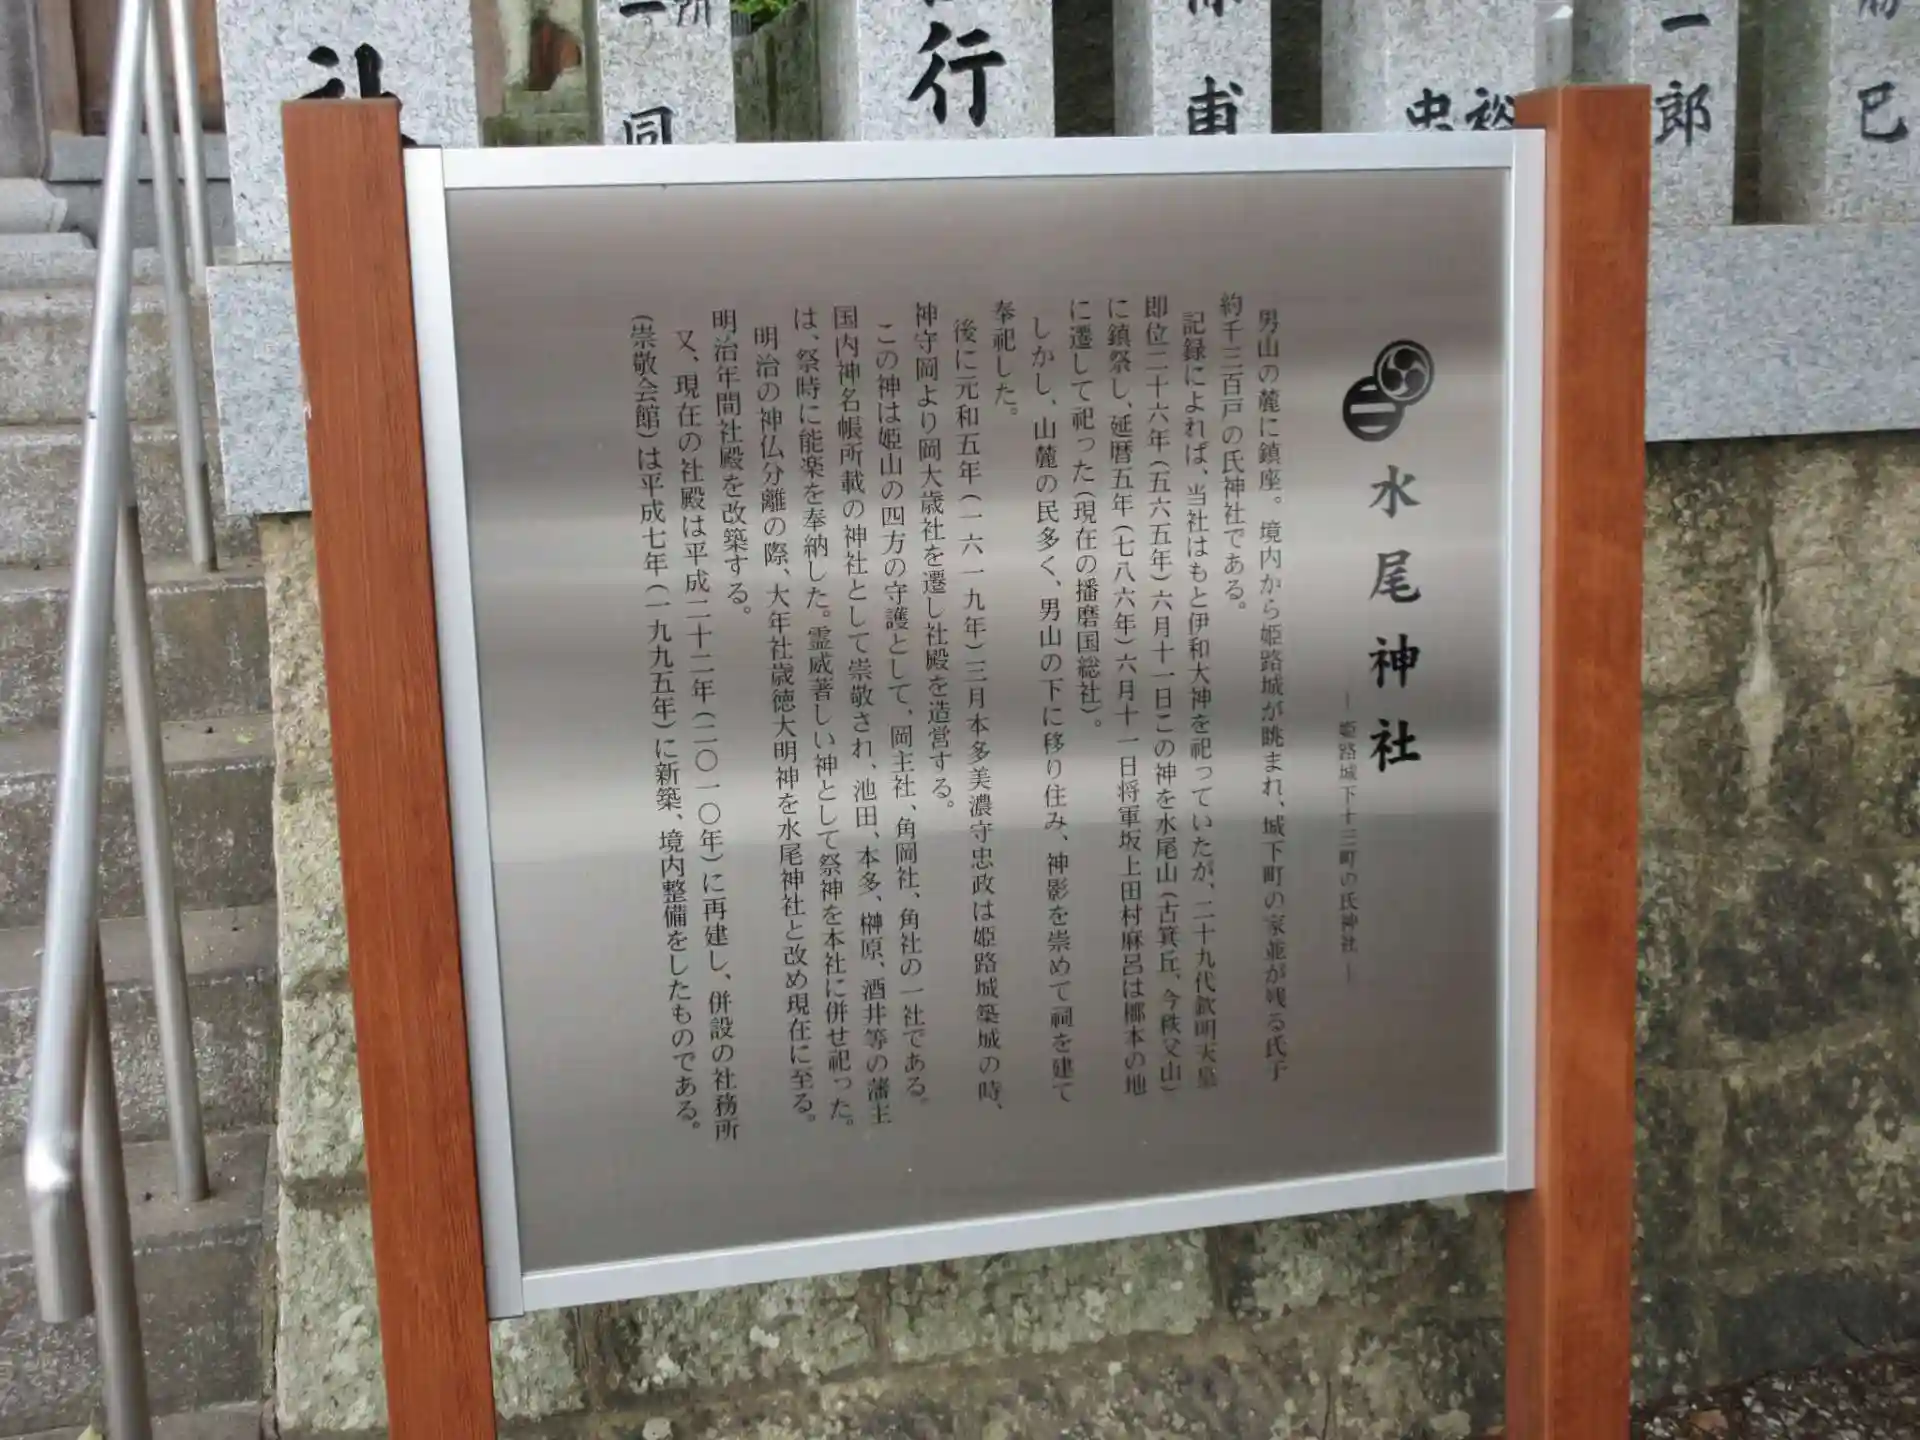 水尾神社
― 姫路城下十三町の氏神社 ―
男山の麓に鎮座。境内から姫路城が眺まれ、城下町の家並が残る氏子
約千三百戸の氏神社である。
記録によれば、当社はもと伊和大神を祀っていたが、二十九代欽明天皇
即位二十六年(五六五年)六月十一日この神を水尾山(古箕丘、今秩父山)
に鎮祭し、延暦五年(七八六年)六月十一日将軍坂上田村麻呂は梛本の地
に遷して祀った(現在の播磨国総社)。
しかし、山麓の民多く、男山の下に移り住み、神影を崇めて祠を建て
奉祀した。
後に元和五年(一六一九年)三月本多美濃守忠政は姫路城築城の時、
神守岡より岡大歳社を遷し社殿を造営する。
この神は姫山の四方の守護として、岡主社、角岡社、角社の一社である。
国内神名帳所載の神社として崇敬され、池田、本多、榊原、酒井等の藩主
は、祭時に能楽を奉納した。霊威著しい神として祭神を本社に併せ祀った。
明治の神仏分離の際、大年社歳徳大明神を水尾神社と改め現在に至る。
明治年間社殿を改築する。
又、現在の社殿は平成二十二年(二〇一〇年)に再建し、併設の社務所
(崇敬会館)は平成七年(一九九五年)に新築、境内整備をしたものである。
社
一
同
行
甫
忠
裕
一郎
巳